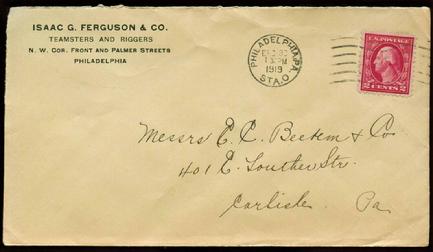 ISAAC G. FERGUSON & CO.
TEAMSTERS AND RIGGERS
N. W. COR. FRONT AND PALMER STREETS
PHILADELPHIA
PHILADELPHIA, PA.
DEC
PM
1919
STA. O
U.S. POSTAGE
2 CENTS 2
Messrs C. C. Beetem & Co
401 E. Souther Str.
Carlisle Pa